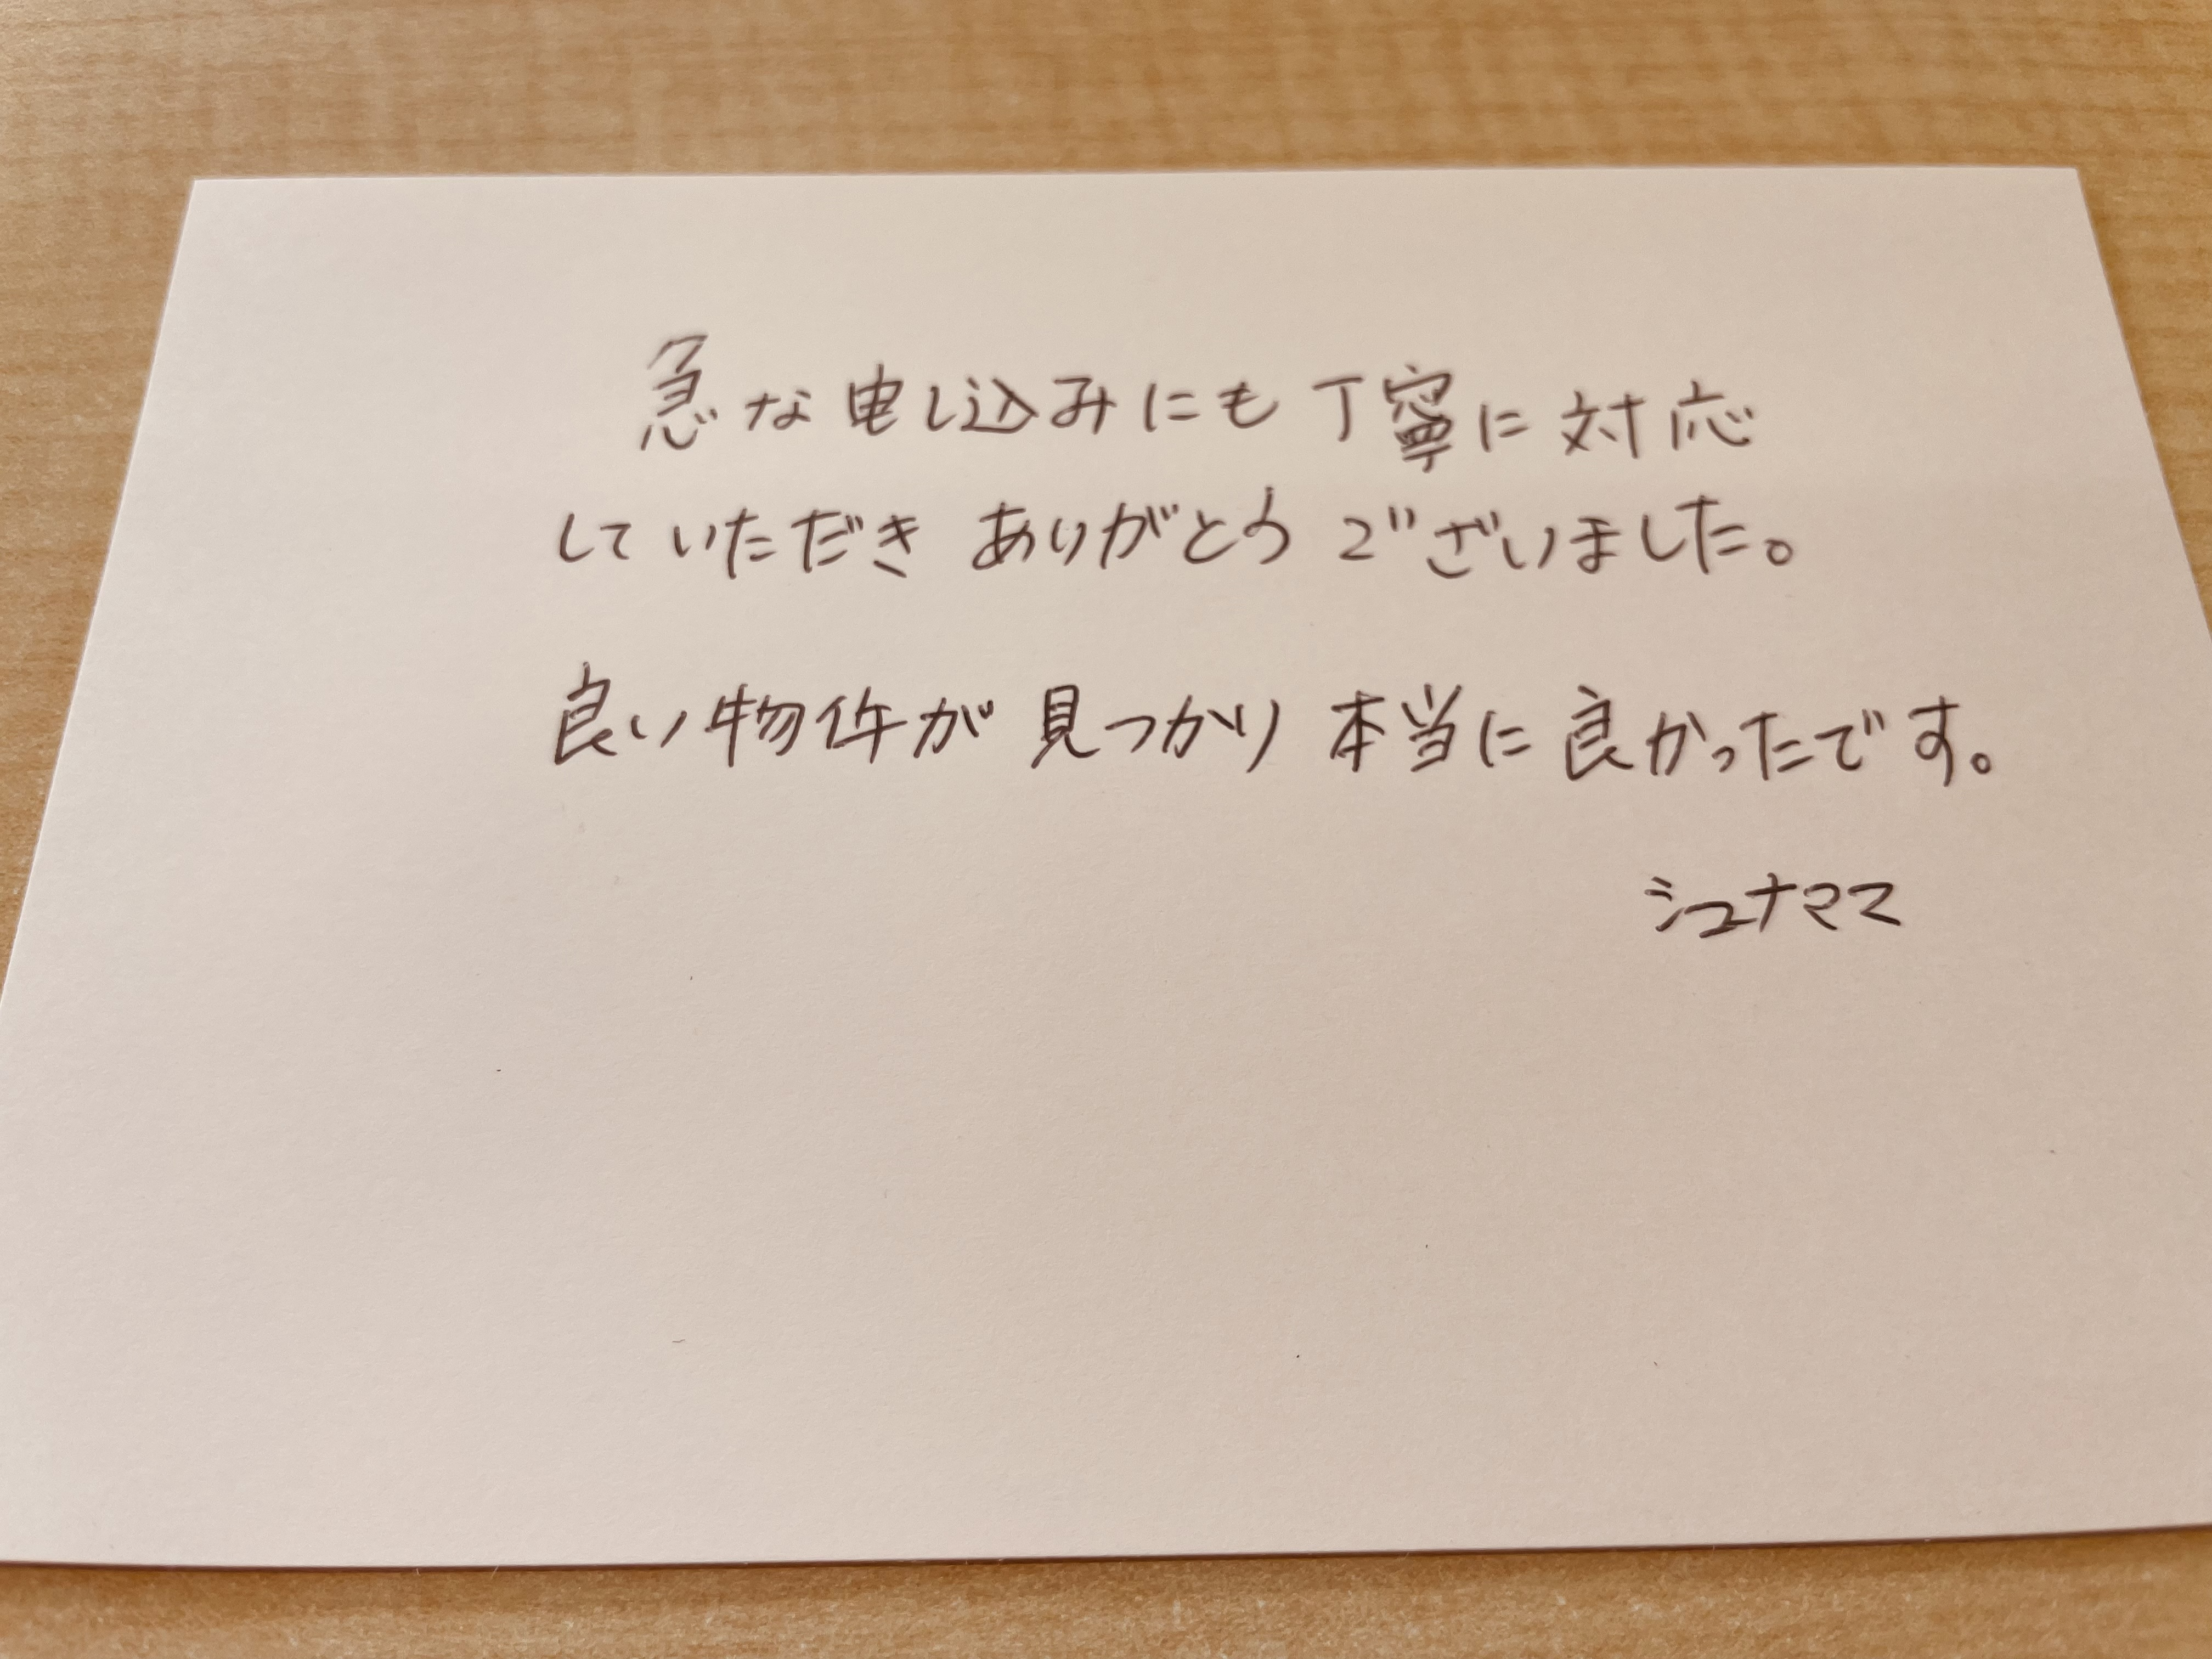 急な申し込みにも丁寧に対応
していただき ありがとう ございました。
良い物件が 見つかり 本当に 良かったです。
シュナママ